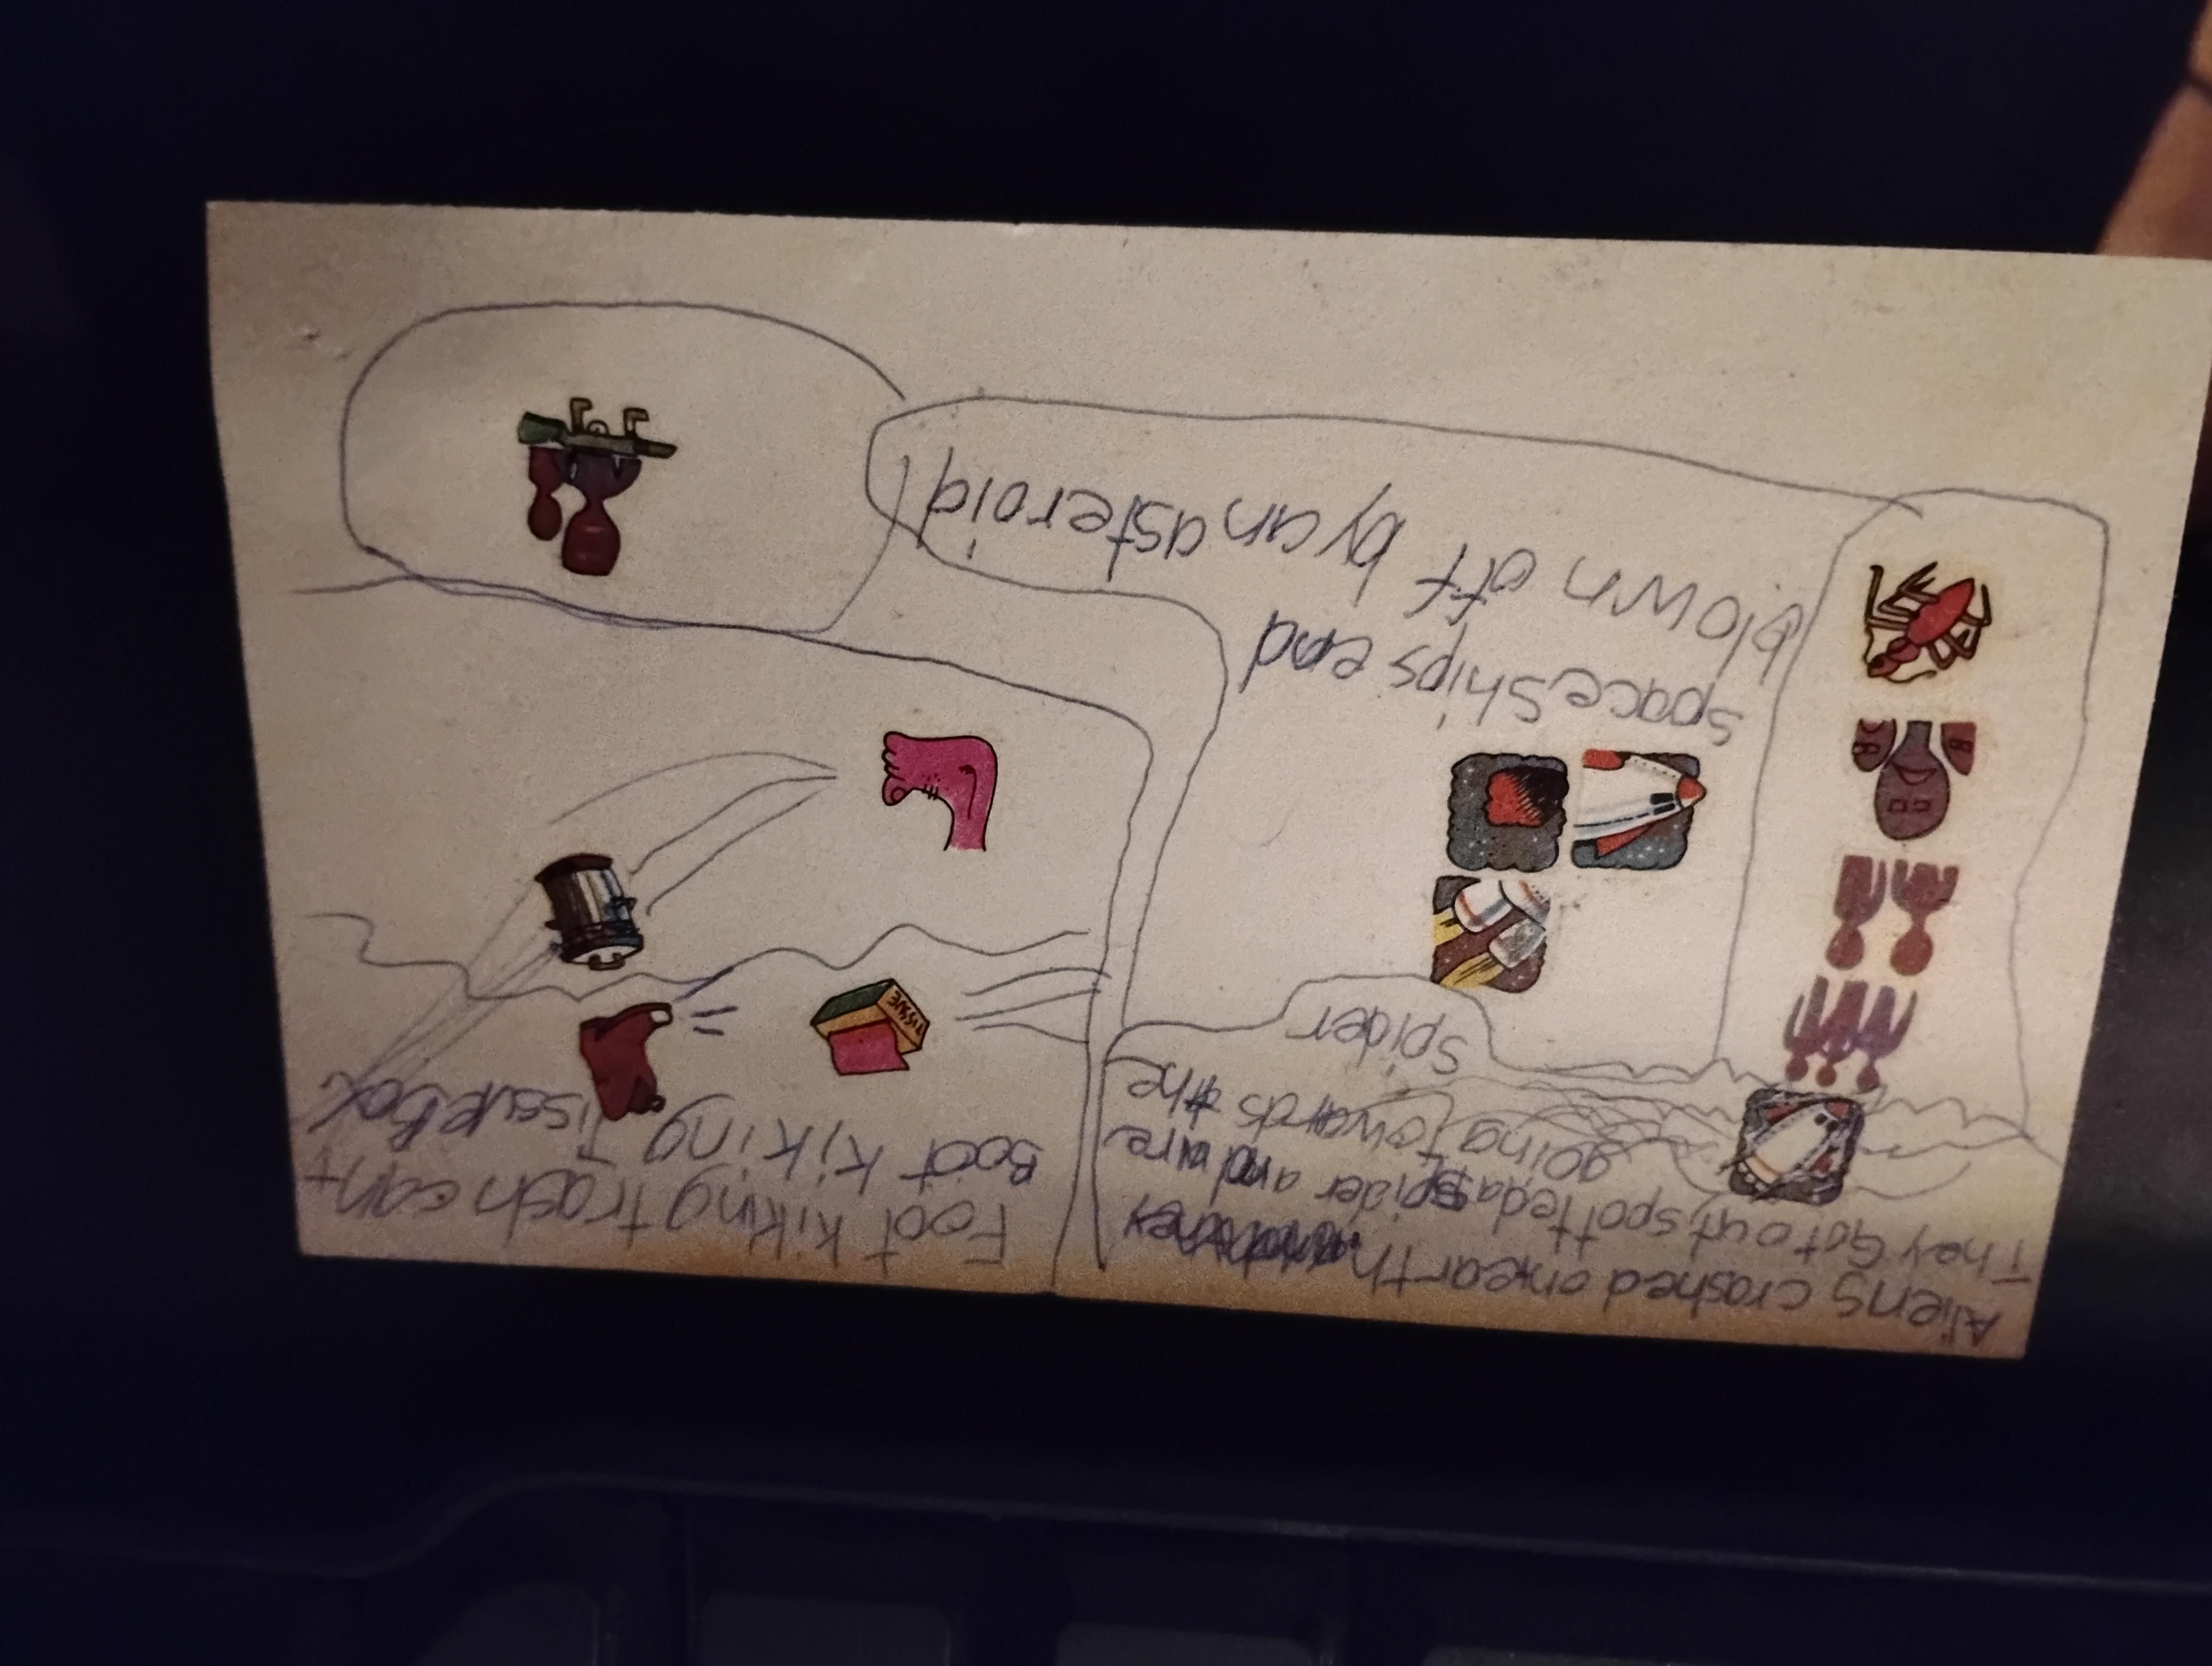 Aliens crashed on earth they
They Got out spotted a spider and are
going towards the
Spider
spaceships end
blown off by an asteroid
Foot kiking trash can +
Boot kiking Tissue Box
TISSUE